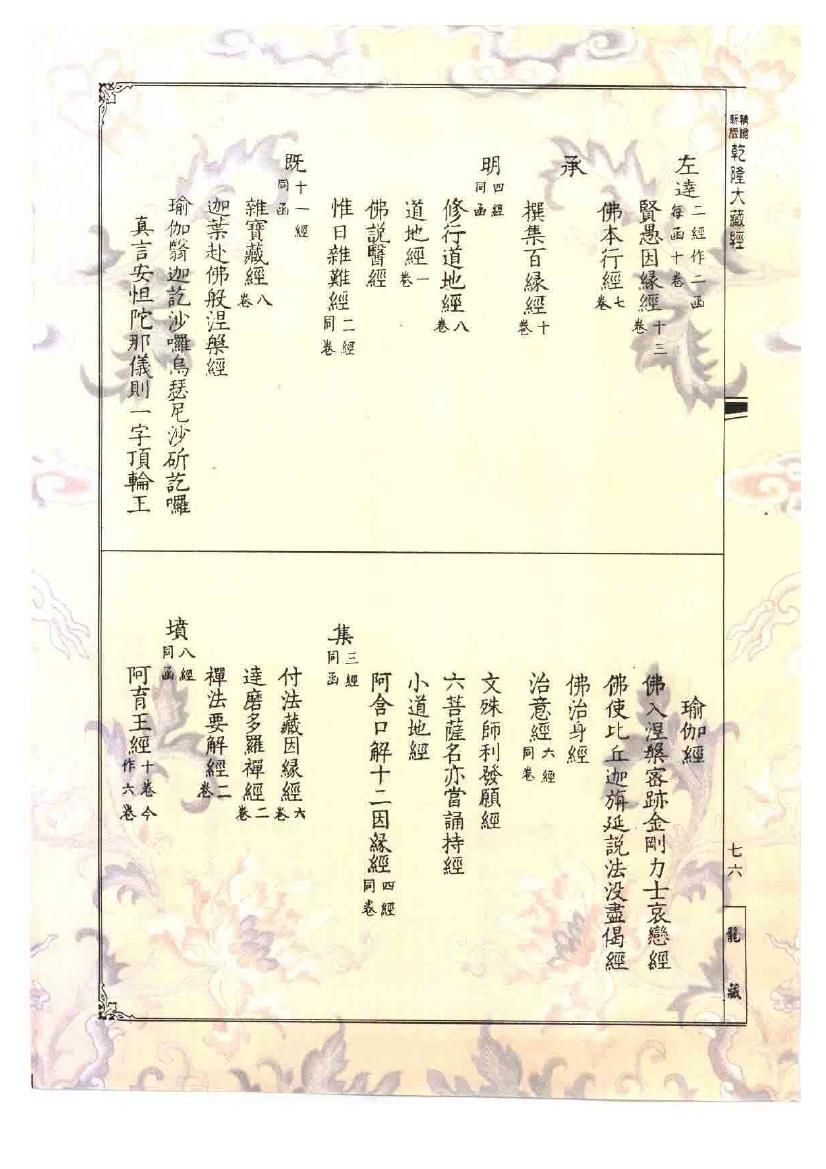 精繪新版 乾隆大藏經
左達 二經作二函每函十卷
賢愚因緣經 十三卷
佛本行經 七卷
承
撰集百緣經 十卷
明 四經同函
修行道地經 八卷
道地經 一卷
佛説醫經
惟日雜難經 二經同卷
既 十一經同函
雜寶藏經 八卷
迦葉赴佛般涅槃經
瑜伽翳迦訖沙囉烏瑟尼沙斫訖囉
真言安怛陀那儀則一字頂輪王
瑜伽經
佛入涅槃宻跡金剛力士哀戀經
佛使比丘迦旃延説法没盡偈經
佛治身經
治意經 六經同卷
文殊師利發願經
六菩薩名亦當誦持經
小道地經
阿含口解十二因緣經 四經同卷
集 三經同函
付法藏因緣經 六卷
達磨多羅禪經 二卷
禪法要解經 二卷
墳 八經同函
阿育王經 十卷今作六卷
七六
龍藏